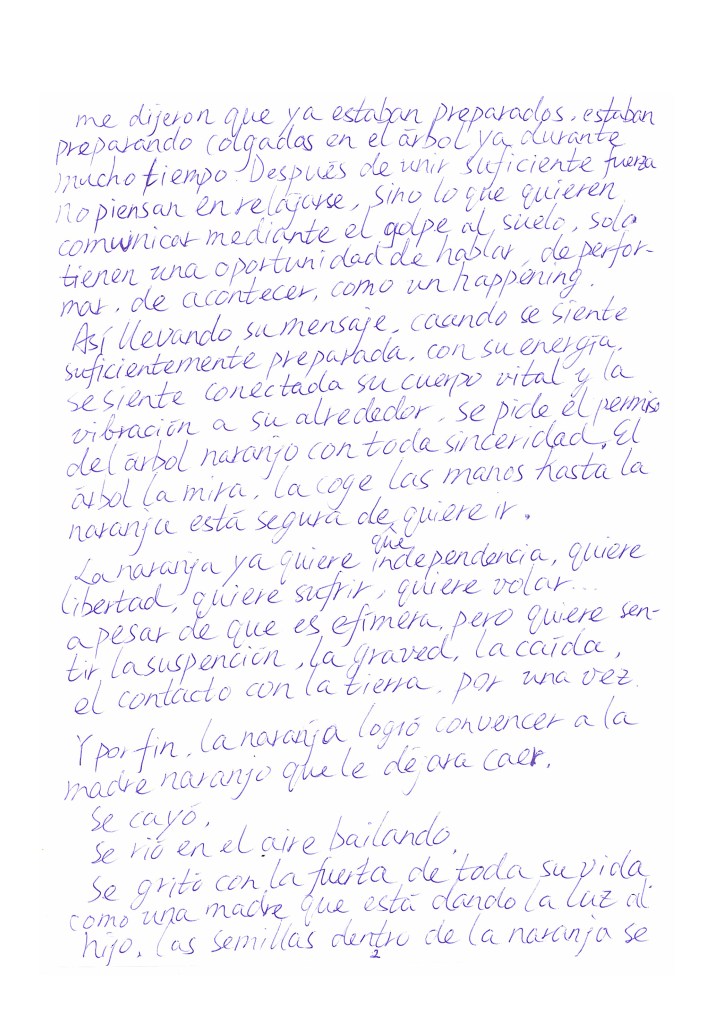 me dijeron que ya estaban preparados, estaban
preparando colgados en el árbol ya durante
mucho tiempo. Después de unir suficiente fuerza
no piensan en relajarse, sino lo que quieren
comunicar mediante el golpe al suelo, solo
tienen una oportunidad de hablar, de perfor-
mar, de acontecer, como un happening.
Así llevando su mensaje, cuando se siente
suficientemente preparada, con su energía,
se siente conectada su cuerpo vital y la
vibración a su alrededor, se pide el permiso
del árbol naranjo con toda sinceridad. El
árbol la mira, la coge las manos hasta la
naranja está segura de que quiere ir.
La naranja ya quiere independencia, quiere
libertad, quiere sufrir, quiere volar...
a pesar de que es efímera, pero quiere sen-
tir la suspención, la graved, la caída,
el contacto con la tierra, por una vez.
Y por fin, la naranja logró convencer a la
madre naranjo que le dejara caer.
Se cayó,
Se rió en el aire bailando,
Se gritó con la fuerta de toda su vida
como una madre que está dando la luz al
hijo, las semillas dentro de la naranja se
2